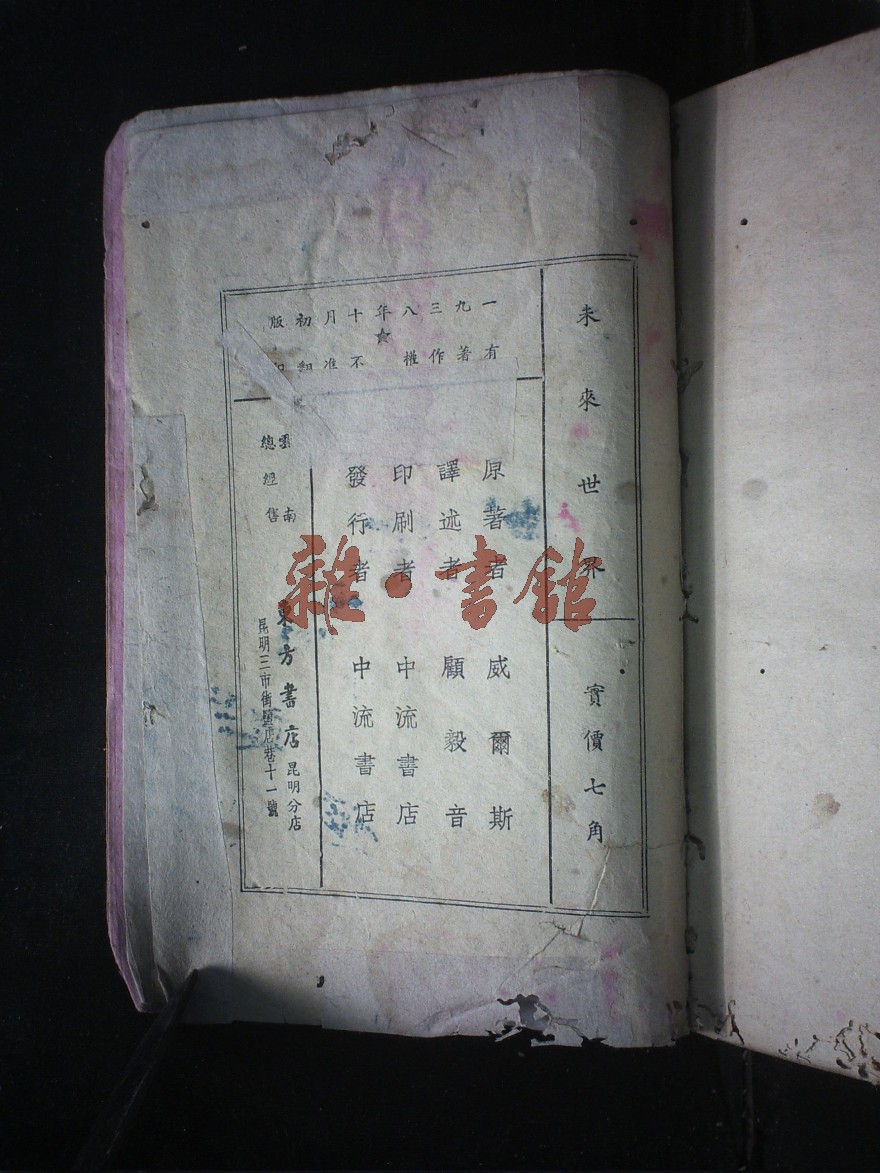 未來世界
實價七角
一九三八年十月初版
有著作權 不准翻印
原著者 威爾斯
譯述者 顧毅音
印刷者 中流書店
發行者 中流書店
雲南
總經售
東方書店昆明分店
昆明三市街
巷十一號
雜·書館